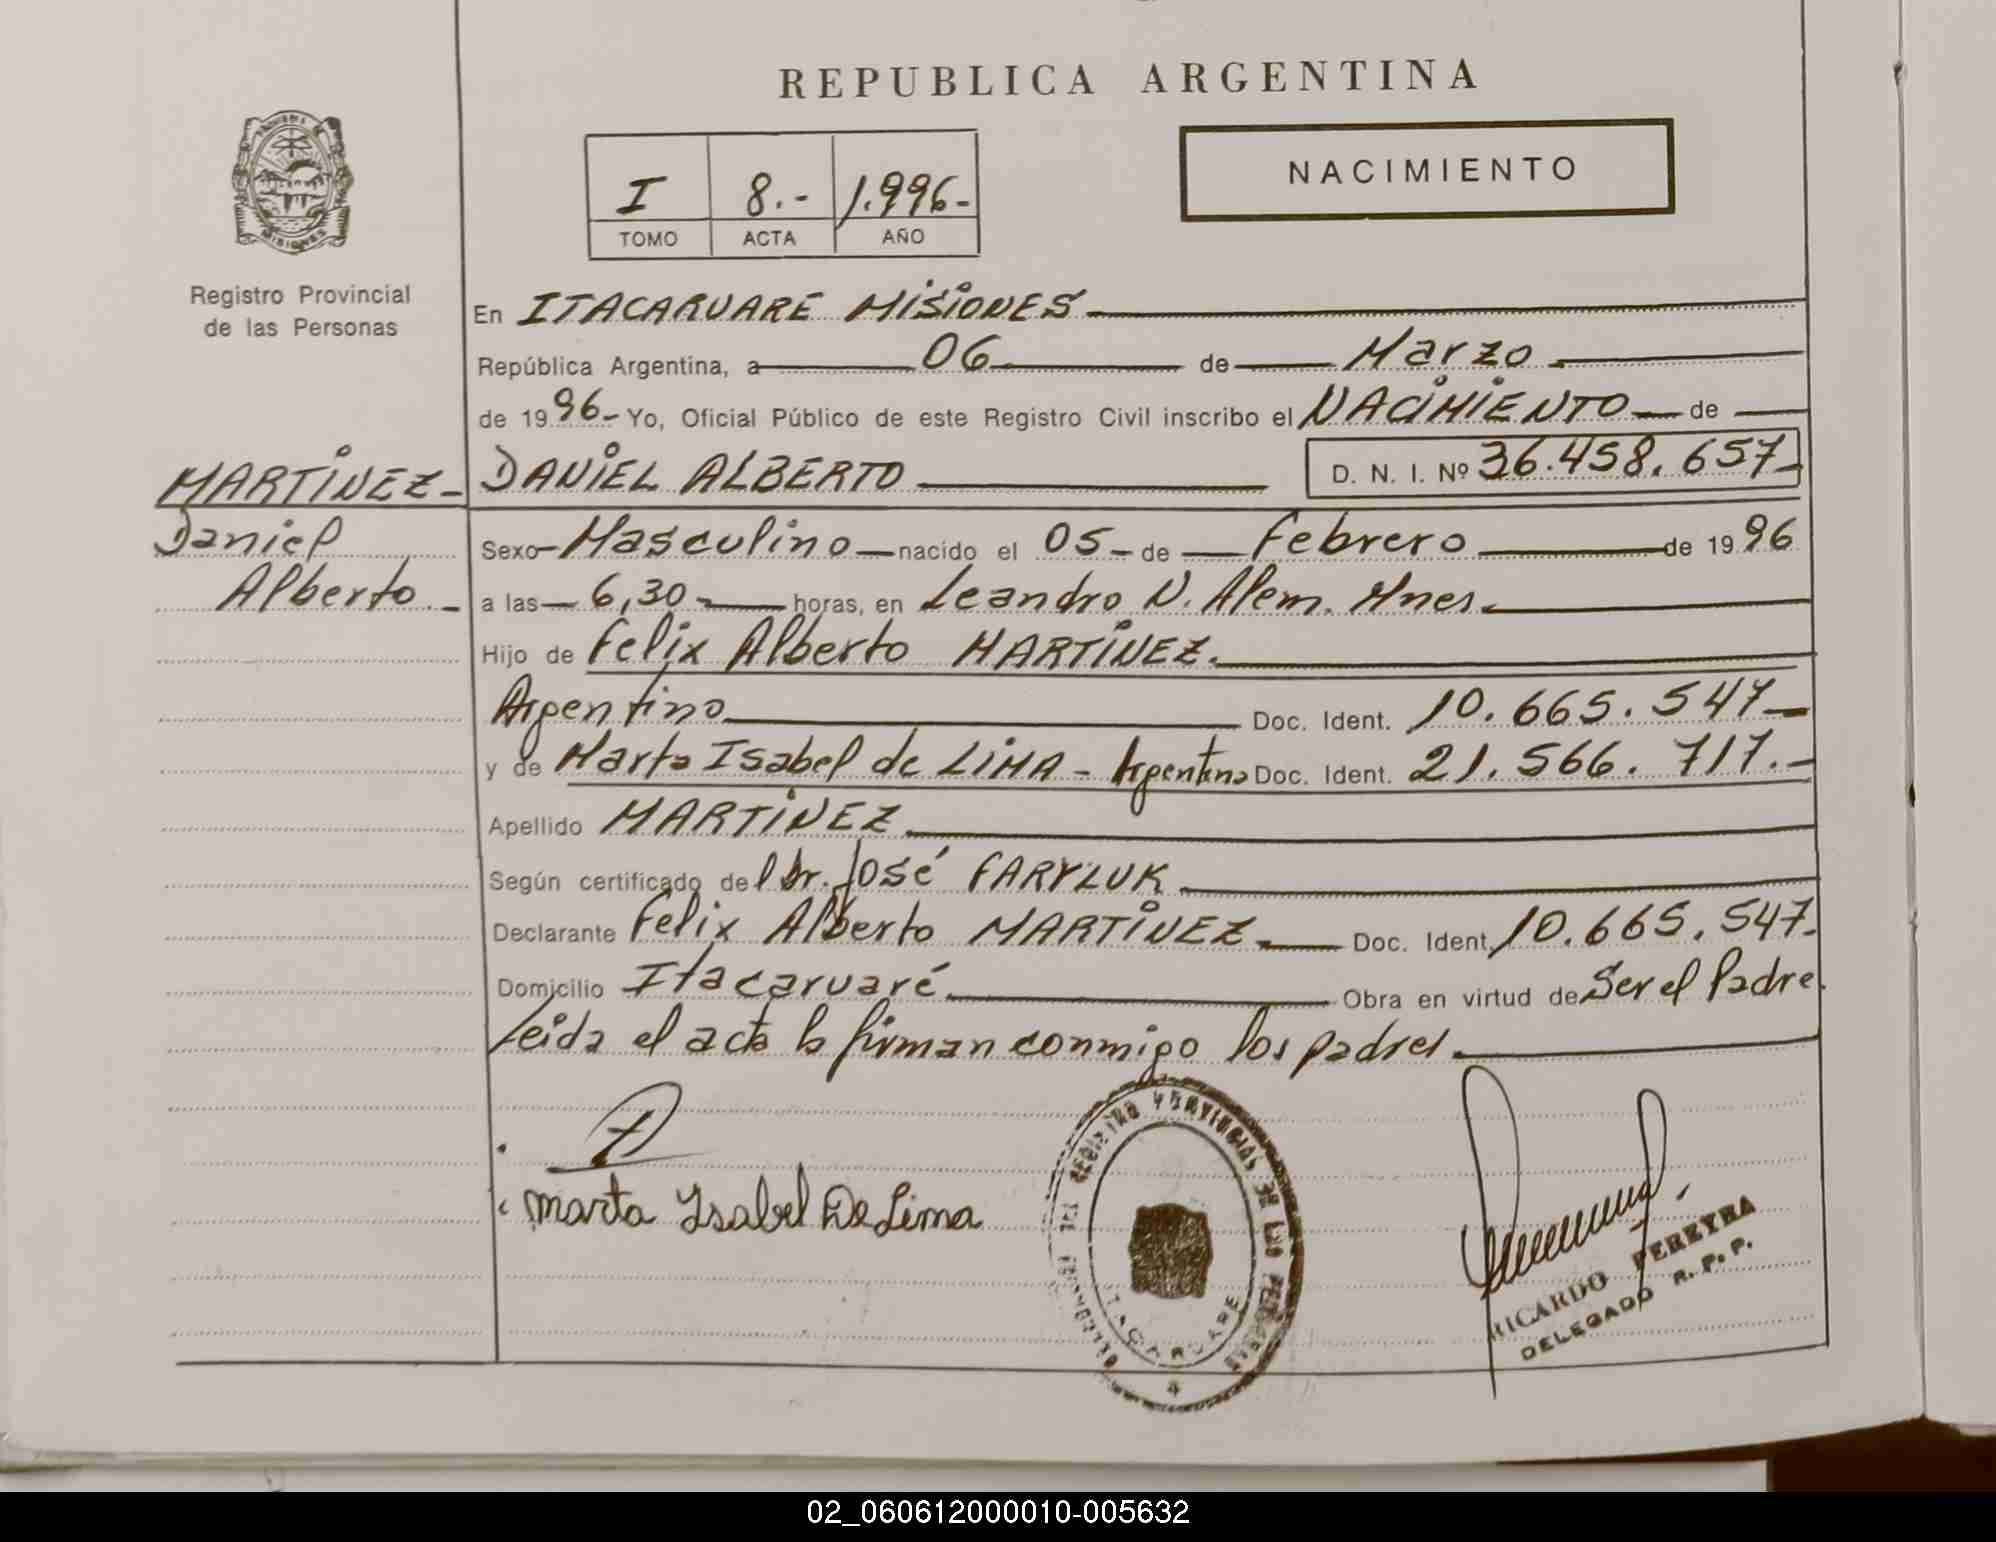 REPUBLICA ARGENTINA
NACIMIENTO
I 8.- 1.996-
TOMO ACTA AÑO
MISIONES
Registro Provincial
de las Personas
En ITACARUARE MISIONES
República Argentina, a 06 de Marzo
de 1996- Yo, Oficial Público de este Registro Civil inscribo el NACIMIENTO de
MARTINEZ- DANIEL ALBERTO D. N. I. Nº 36.458.657-
Daniel Sexo Masculino nacido el 05- de Febrero de 1996
Alberto.- a las 6,30- horas, en Leandro N. Alem. Mnes.
Hijo de Felix Alberto MARTINEZ.
Argentino Doc. Ident. 10.665.547-
y de Marta Isabel de LIMA - Argentina Doc. Ident. 21.566.717.-
Apellido MARTINEZ
Según certificado del Dr. José FARYLUK
Declarante Felix Alberto MARTINEZ. Doc. Ident. 10.665.547-
Domicilio Itacaruaré Obra en virtud de Ser el Padre.
Leida el acta la firman conmigo los padres.
Marta Ysabel De Lima
REGISTRO PROVINCIAL DE LAS PERSONAS
ITACARUARE
RICARDO PEREYRA
DELEGADO R. P. P.
02_060612000010-005632